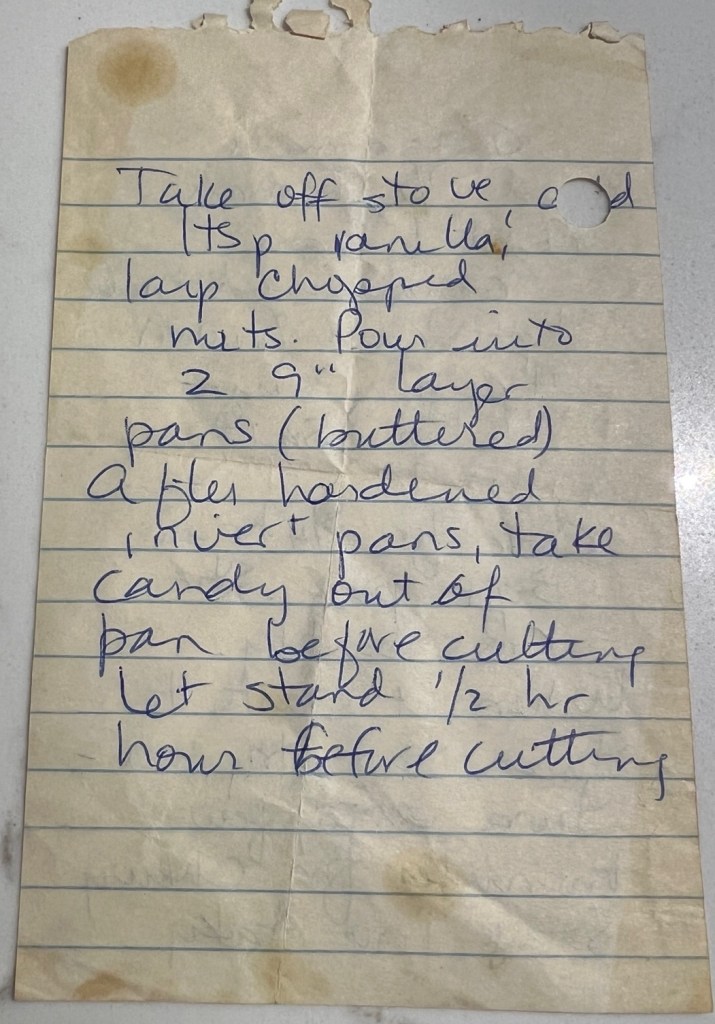 Take off stove, add
1tsp vanilla,
1 cup chopped
nuts. Pour into
2 9" layer
pans (buttered)
After hardened
invert pans, take
candy out of
pan before cutting
Let stand 1/2 hr
hour before cutting